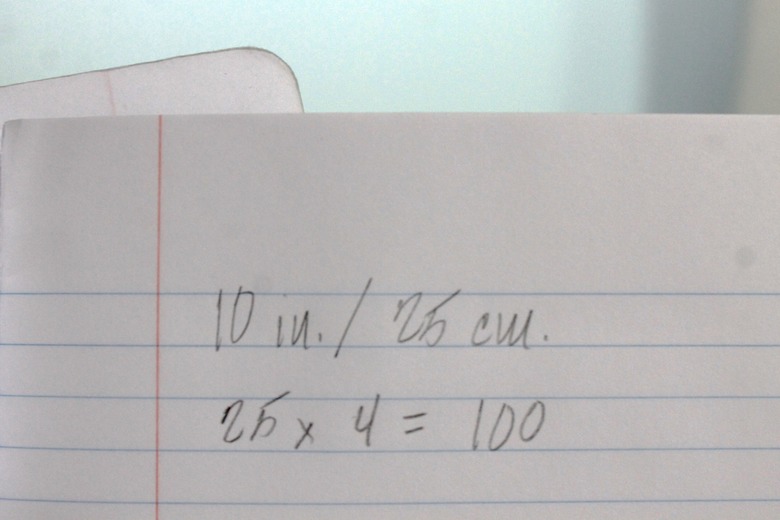 10 in. / 25 cm.
25 x 4 = 100